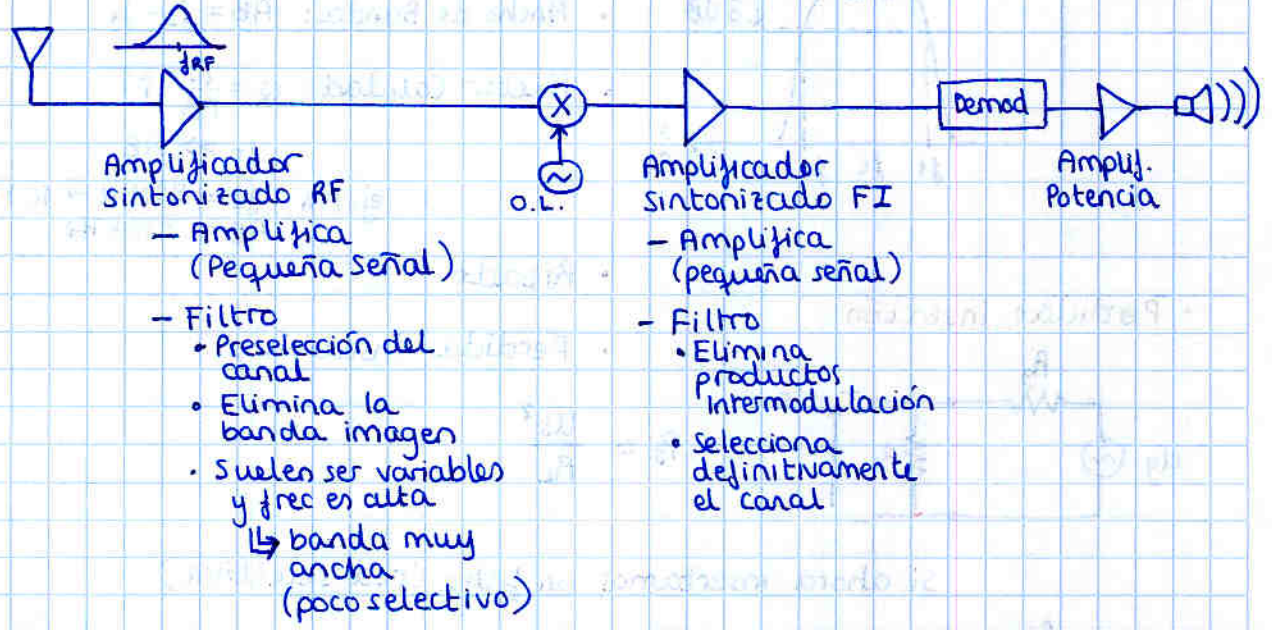 fRF
X
O.L.
Demod
Amplificador
sintonizado RF
— Amplifica
(Pequeña señal)
— Filtro
• Preselección del
canal
• Elimina la
banda imagen
• Suelen ser variables
y frec es alta
↳ banda muy
ancha
(poco selectivo)
Amplificador
sintonizado FI
— Amplifica
(pequeña señal)
— Filtro
• Elimina
productos
intermodulación
• Selecciona
definitivamente
el canal
Amplif.
Potencia